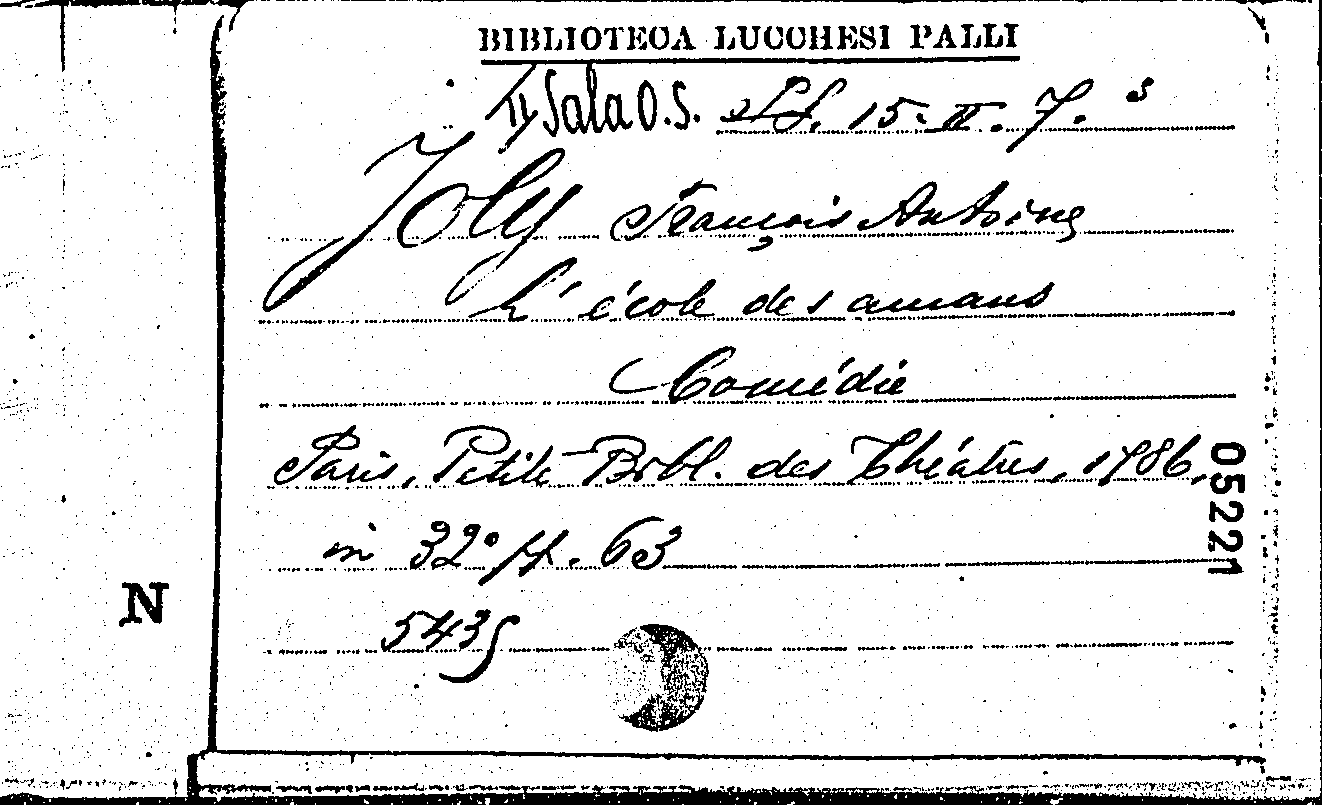 BIBLIOTECA LUCCHESI PALLI
Sala O.S. 15-II. 7. 3
Joly François Antoine
L'école des amans
Comédie
Paris, Petite Bibl. des Théâtres, 1786,
in 32° pp. 63
05221
N